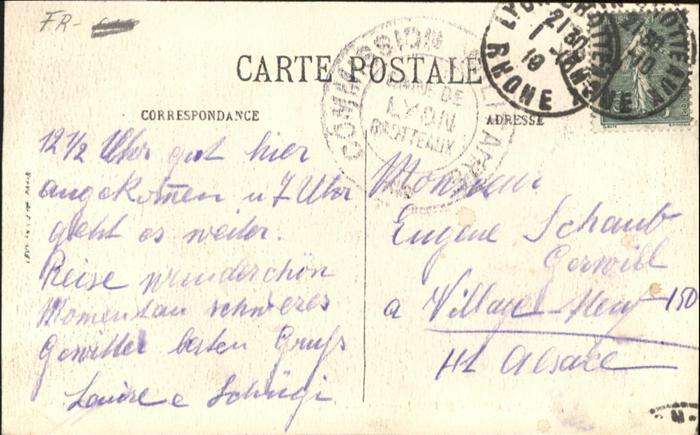 FR-
CARTE POSTALE
CORRESPONDANCE
ADRESSE
COMMISSION MILITAIRE
GARE DE
LYON
BROTTEAUX
LYON BROTTEAUX
21 30
RHONE
12 1/2 Uhr gut hier
angekom̄en u 7 Uhr
geht es weiter.
Reise wunderschön
Momentan schweres
Gewitter besten Gruß
Louise
Monsieur
Eugene Schaub
a Village-Neuf 150
Ht Alsace